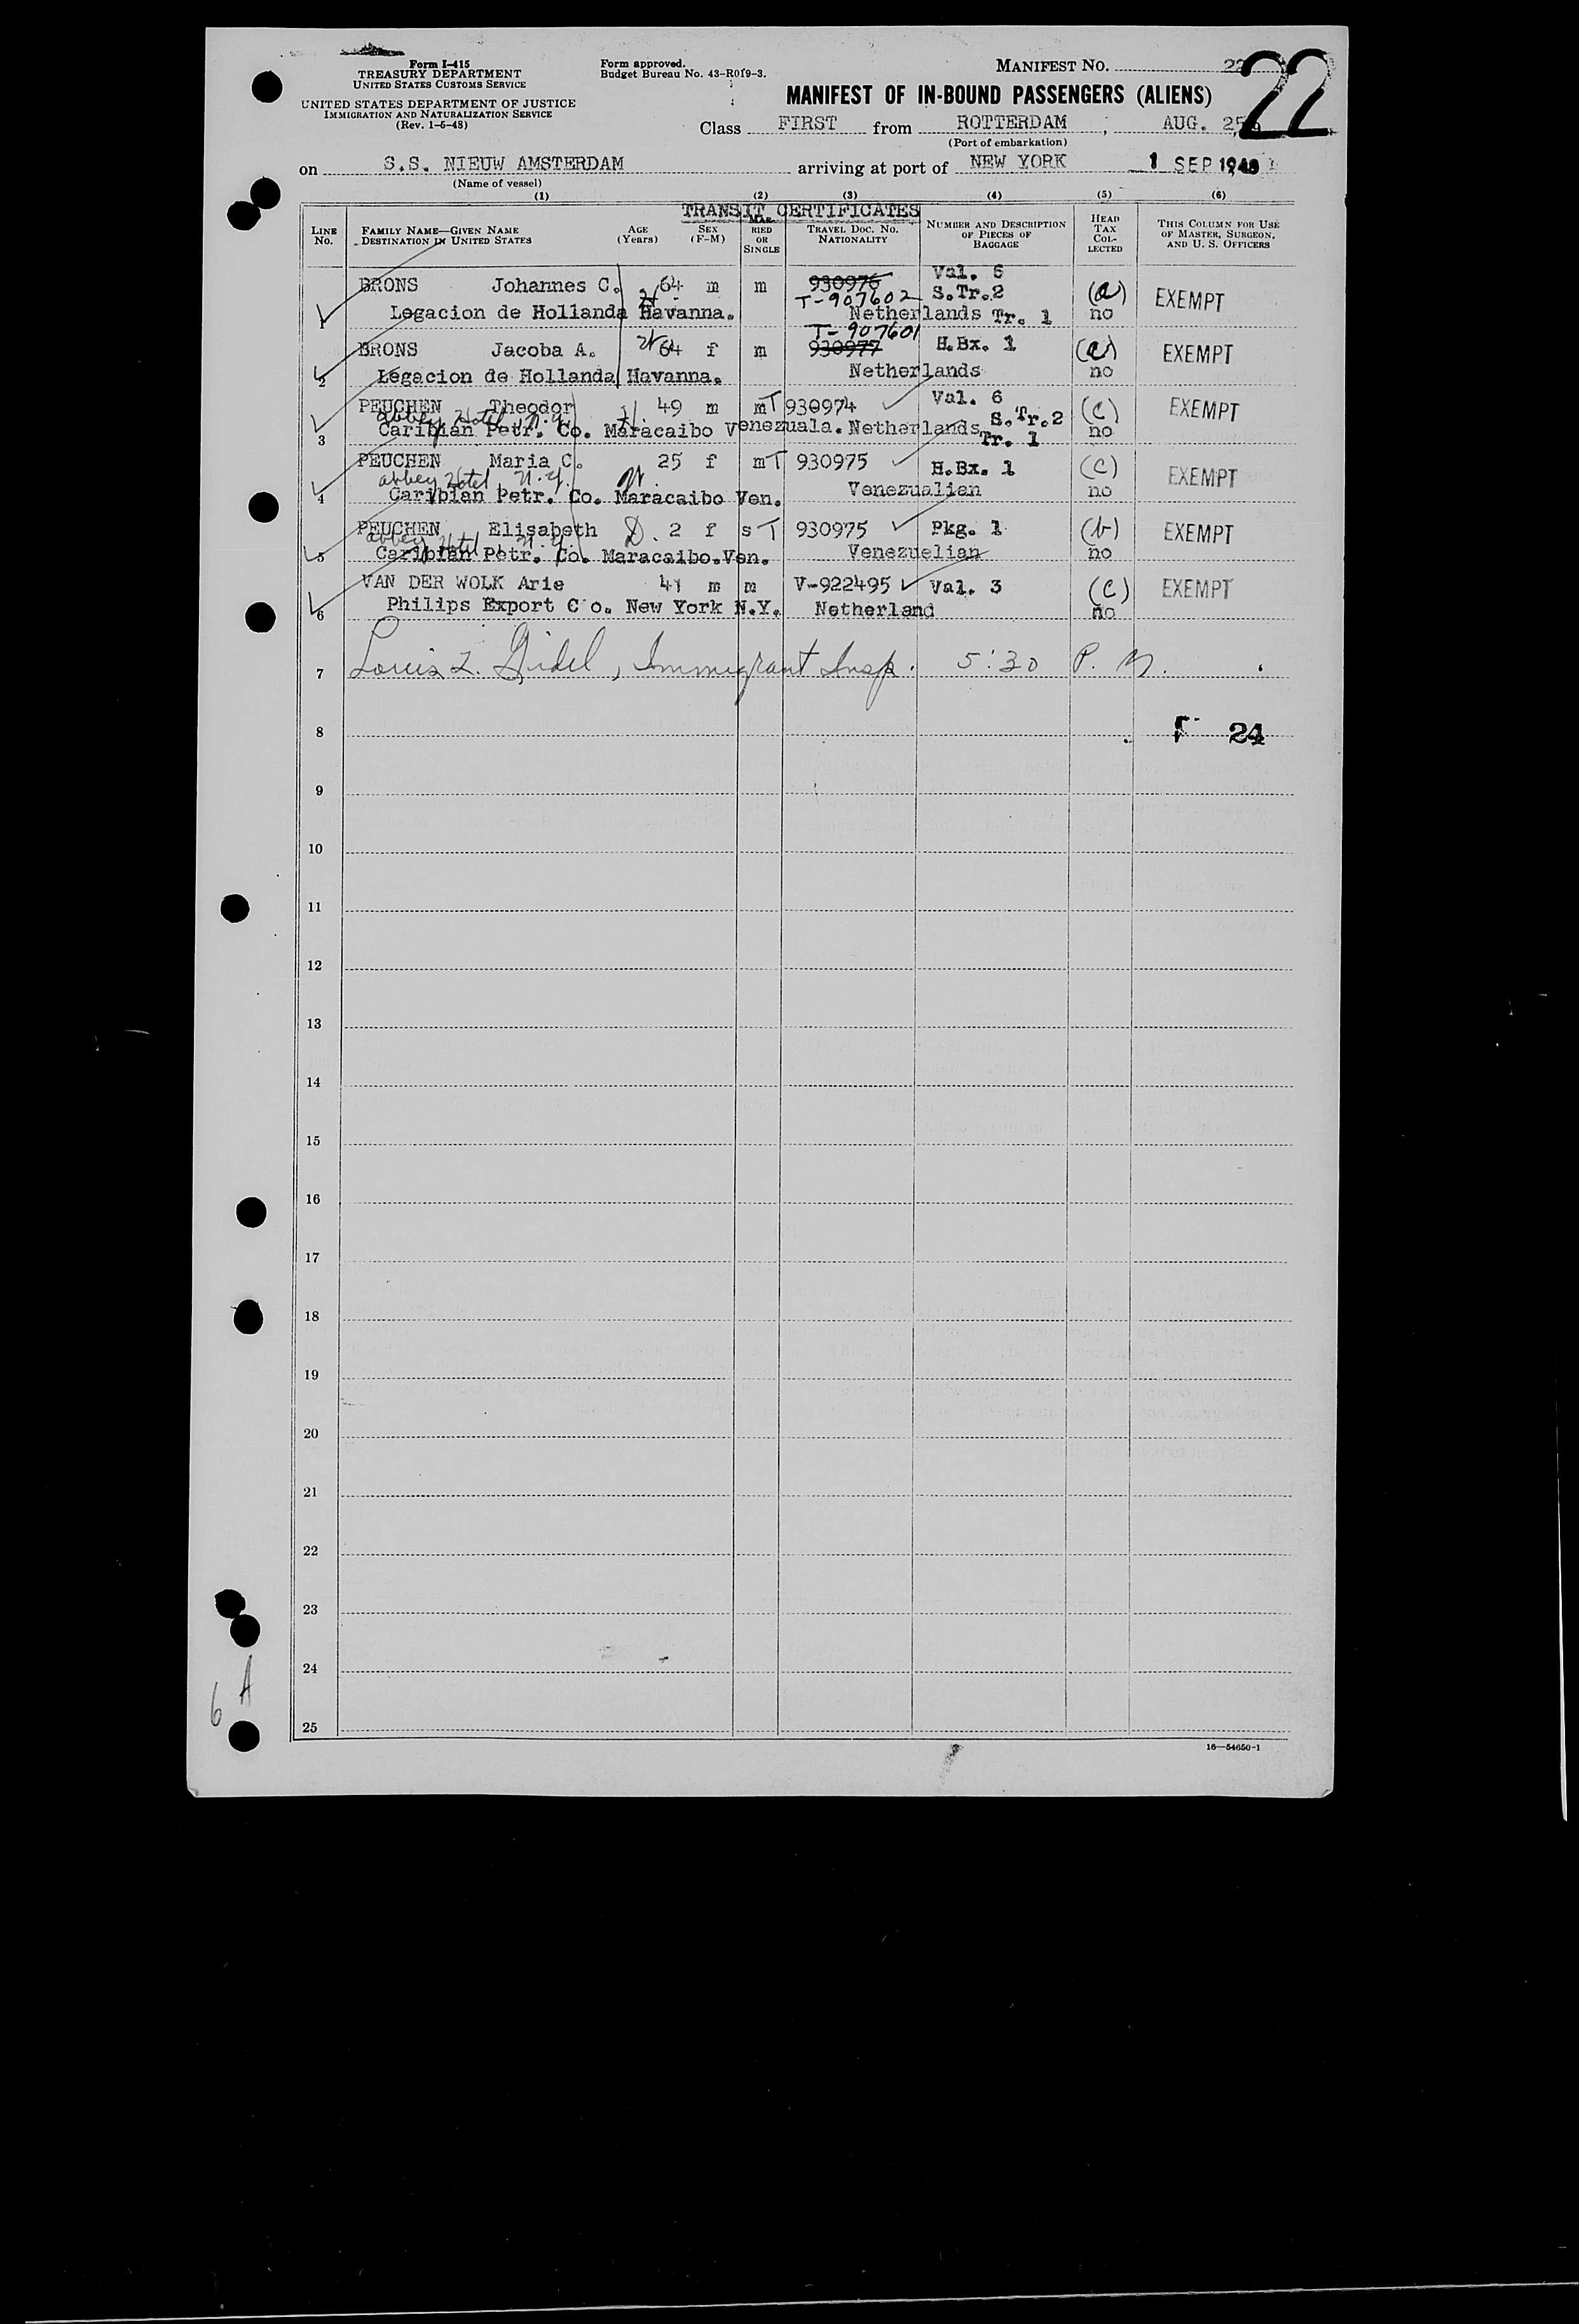 Form I-415
TREASURY DEPARTMENT
UNITED STATES CUSTOMS SERVICE
UNITED STATES DEPARTMENT OF JUSTICE
IMMIGRATION AND NATURALIZATION SERVICE
(Rev. 1-5-48)
Form approved.
Budget Bureau No. 43-R019-3.
MANIFEST NO. 22
22
MANIFEST OF IN-BOUND PASSENGERS (ALIENS)
Class FIRST from ROTTERDAM, AUG. 25
(Port of embarkation)
on S.S. NIEUW AMSTERDAM arriving at port of NEW YORK 1 SEP 1948
(Name of vessel)
(1) (2) (3) (4) (5) (6)
TRANSIT CERTIFICATES
LINE No. FAMILY NAME—GIVEN NAME DESTINATION IN UNITED STATES AGE (Years) SEX (F-M) MARRIED OR SINGLE TRAVEL DOC. NO. NATIONALITY NUMBER AND DESCRIPTION OF PIECES OF BAGGAGE HEAD TAX COLLECTED THIS COLUMN FOR USE OF MASTER, SURGEON, AND U. S. OFFICERS
1 BRONS Johannes C. 64 m m 930976 T-907602 Val. 6 S.Tr.2 (a) EXEMPT
Legacion de Hollanda Havanna. Netherlands Tr. 1 no
2 BRONS Jacoba A. 64 f m T-907601 930977 H.Bx. 1 (a) EXEMPT
Legacion de Hollanda Havanna. Netherlands no
3 PEUCHEN Theodor 49 m m T 930974 Val. 6 S.Tr.2 (c) EXEMPT
abbey Hotel, N.Y.
Caribian Petr. Co. Maracaibo Venezuala. Netherlands Tr. 1 no
4 PEUCHEN Maria C. 25 f m T 930975 H.Bx. 1 (c) EXEMPT
abbey Hotel, N.Y.
Caribian Petr. Co. Maracaibo Ven. Venezualian no
5 PEUCHEN Elisabeth 2 f s T 930975 Pkg. 1 (b) EXEMPT
abbey Hotel, N.Y.
Caribian Petr. Co. Maracaibo.Ven. Venezuelian no
6 VAN DER WOLK Arie 41 m m V-922495 Val. 3 (c) EXEMPT
Philips Export Co. New York N.Y. Netherland no
7 Louis L. Gidel, Immigrant Insp. 5:30 P. M.
8 24
9
10
11
12
13
14
15
16
17
18
19
20
21
22
23
24
25
6 A
16—54650-1